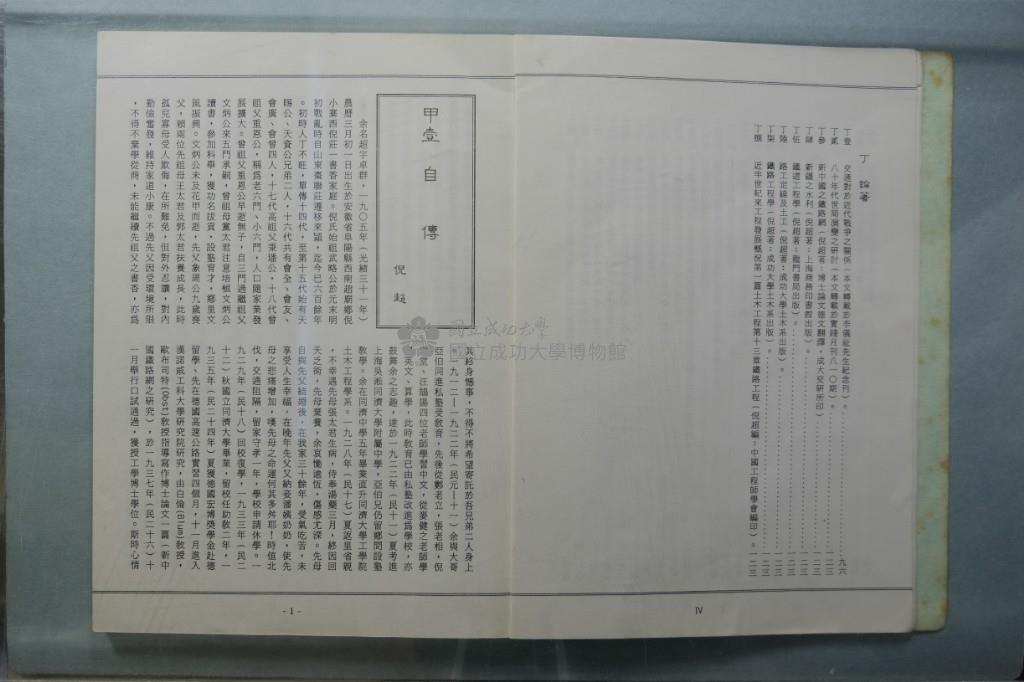 丁 論著
丁壹 交通對於近代戰爭之關係(本文轉載於李儀祉先生紀念刊)。
丁貳 八十年代世局演變之研討(本文轉載於實踐月刊八一〇期)。……九六
丁參 新中國之鐵路網(倪超著:博士論文德文翻譯,成大交研所印)……一二三
丁肆 新疆之水利(倪超著:上海商務印書館出版)。……一二三
丁伍 鐵道工程學(倪超著:龍門書局出版)。……一二三
丁陸 路工定線及土工(倪超著:成功大學土木系出版)。……一二三
丁柒 鐵路工程學(倪超著:成功大學土木系出版)。……一二三
丁捌 近半世紀來工程發展概況第一篇土木工程第十三章鐵路工程(倪超編:中國工程師學會編印)。一二三
IV
甲壹 自傳
倪超
余名超字卓群,一九〇五年(光緒三十一年)
農曆三月初一日出生於安徽省阜陽縣西南趙廟鄉倪
小寨西倪莊一書香家庭。倪氏始祖武略公於元末明
初戰亂時自山東棗聯莊遷移來潁,迄今已六百餘年
。初時人丁不旺,單傳十四代,至第十五代始有天
賜公、天資公兄弟二人,十六代共有會全、會友、
會廣、會曾四人,十七代高祖父秉璠公,十八代曾
祖父重恩公,稱為老六門、小六門,人口隨家業發
展擴大。曾祖父重恩公早逝無子,自三門過繼祖父
文炳公來五門承嗣,曾祖母黨太君注意培植文炳公
讀書,參加科舉,獲功名拔貢,設塾育才,鄉里文
風振興。文炳公未及花甲而逝,先父象周公九歲喪
父,賴兩位先祖母王太君及郭太君扶養成長,此時
孤兒寡母受人欺侮,在所難免,但對外忍讓,對內
勤儉奮發,維持家道小康。不過先父因受環境所限
,不得不棄學從商,未能繼續先祖父之書香,亦為
其終身憾事,不得不將希望寄託於吾兄弟二人身上
。一九一二—一九二二年(民元—十一)余與大哥
亞伯同進私塾受教育,先後從鄭老立,張老相,倪
堂、汪鵠揚四位老師學習中文,從麥健之老師學
英文、算學,此時教育已由私塾改進為學校,亦
鼓舞余之志趣,遂於一九二二年(民十一)夏考進
上海吳淞同濟大學附屬中學,亞伯兄仍留鄉間設塾
教學。余在同濟中學五年畢業直升同濟大學工學院
土木工程學系。一九二八年(民十七)夏返里省親
,不幸遭遇先母張太君生病,侍奉湯藥三月,終因回
天乏術,先母棄養,余哀慟逾恆,傷感尤深。先母
自與先父結婚後,在我家三十餘年,受氣吃苦,未
享受人生幸福,在晚年先父又納妾潘姨奶奶,使先
母之悲痛增加,嘆先母之命運何其多舛耶!時值北
伐,交通阻隔,留家守孝一年,學校申請休學。一
九二九年(民十八)回校復學,一九三三年(民二
十二)秋國立同濟大學畢業,留校任助教二年,一
九三五年(民二十四年)夏獲德國宏博獎學金赴德
留學,先在德國高速公路實習四個月,十一月進入
漢諾威工科大學研究院研究,由白倫(Blum)教授,
歐布司特(Obst)教授指導寫作博士論文一篇(新中
國鐵路網之研究),於一九三七年(民二十六)十
一月舉行口試通過,獲授工學博士學位。斯時心情
- 1 -
國立成功大學
國立成功大學博物館